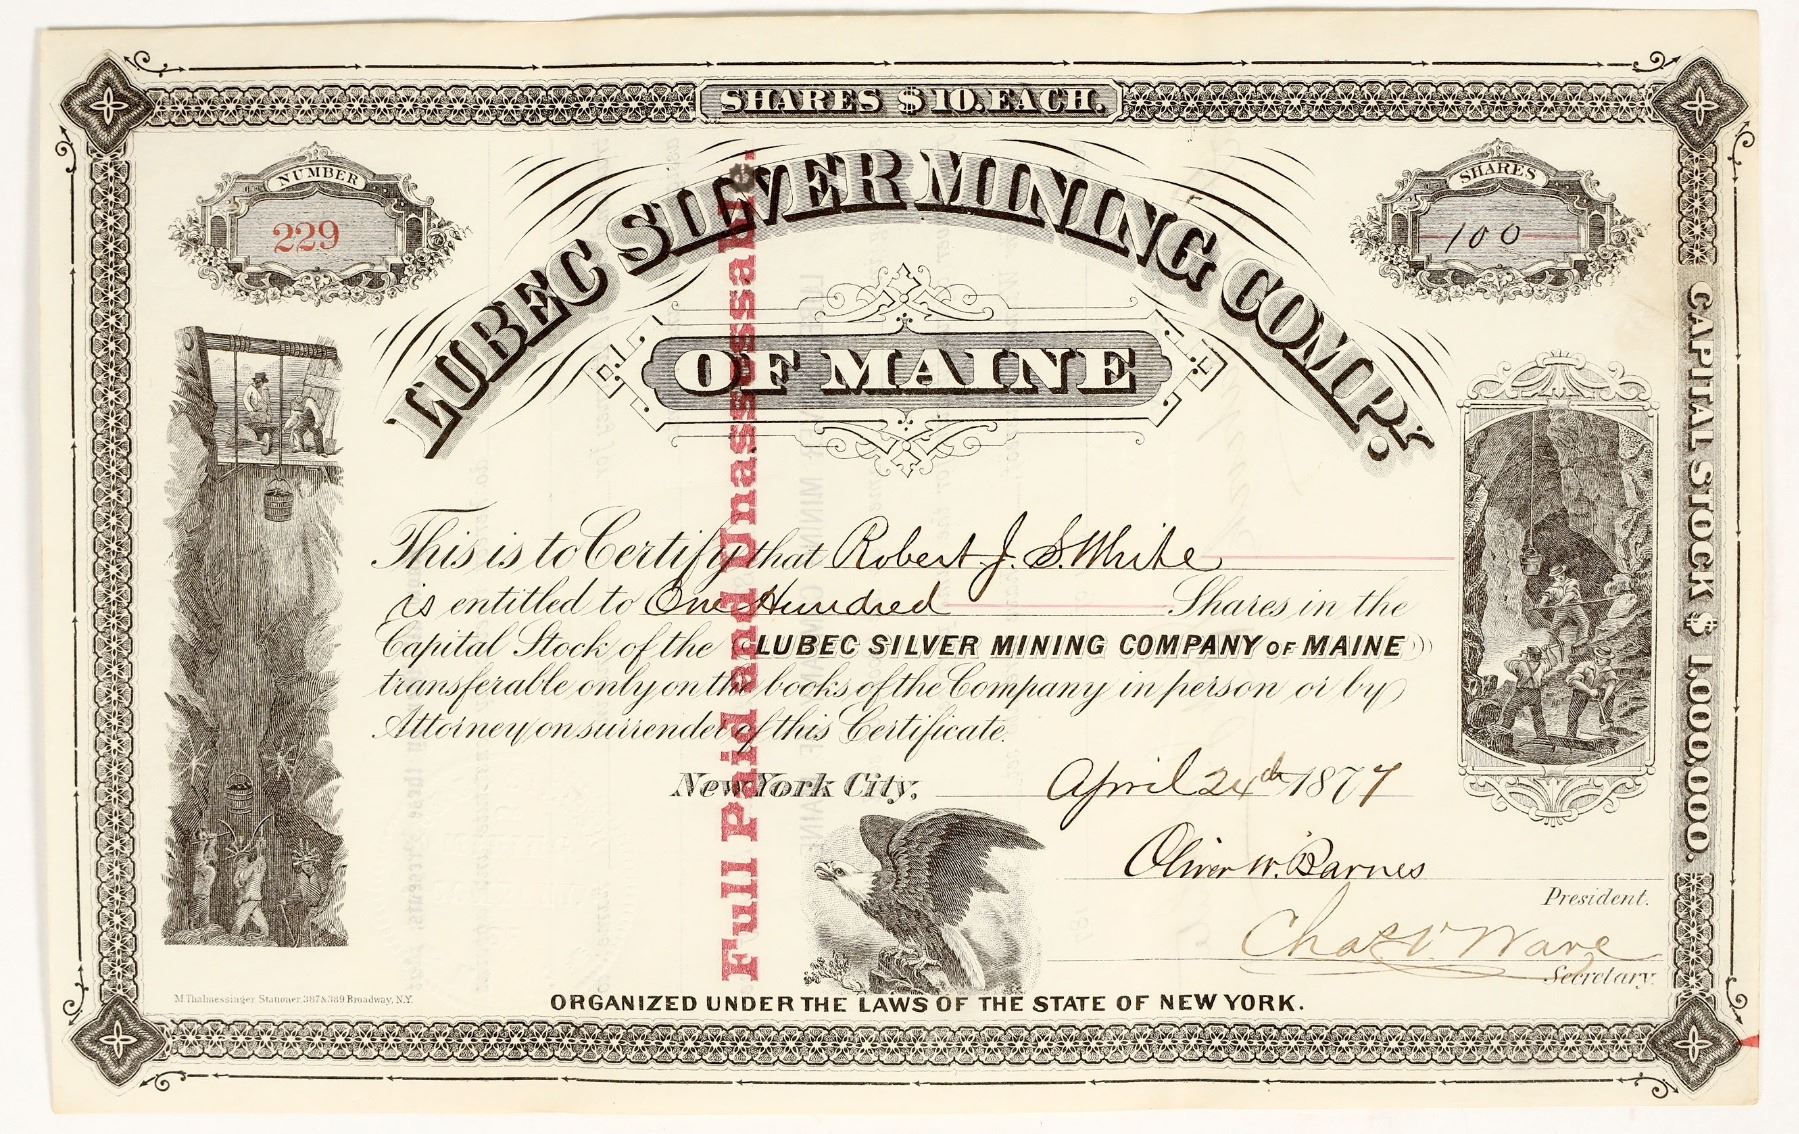 SHARES $10. EACH.
NUMBER
229
SHARES
100
LUBEC SILVER MINING COMP.Y
OF MAINE
Full Paid and Unassessable.
CAPITAL STOCK $ 1,000,000.
This is to Certify that Robert J. S. White
is entitled to One Hundred Shares in the
Capital Stock of the LUBEC SILVER MINING COMPANY OF MAINE
transferable only on the books of the Company in person or by
Attorney on surrender of this Certificate.
New York City, April 24th 1877
Oliver W. Barnes
President.
Chas V. Ware
Secretary.
M Thalmessinger, Stationer, 387 & 389 Broadway, N.Y.
ORGANIZED UNDER THE LAWS OF THE STATE OF NEW YORK.